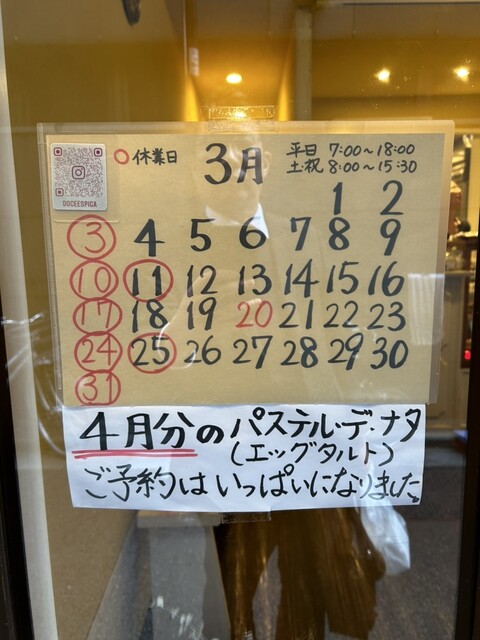 DOCEESPIGA
○休業日
3月
平日 7:00~18:00
土祝 8:00~15:30
1 2
3 4 5 6 7 8 9
10 11 12 13 14 15 16
17 18 19 20 21 22 23
24 25 26 27 28 29 30
31
4月分のパステル・デ・ナタ
(エッグタルト)
ご予約はいっぱいになりました。